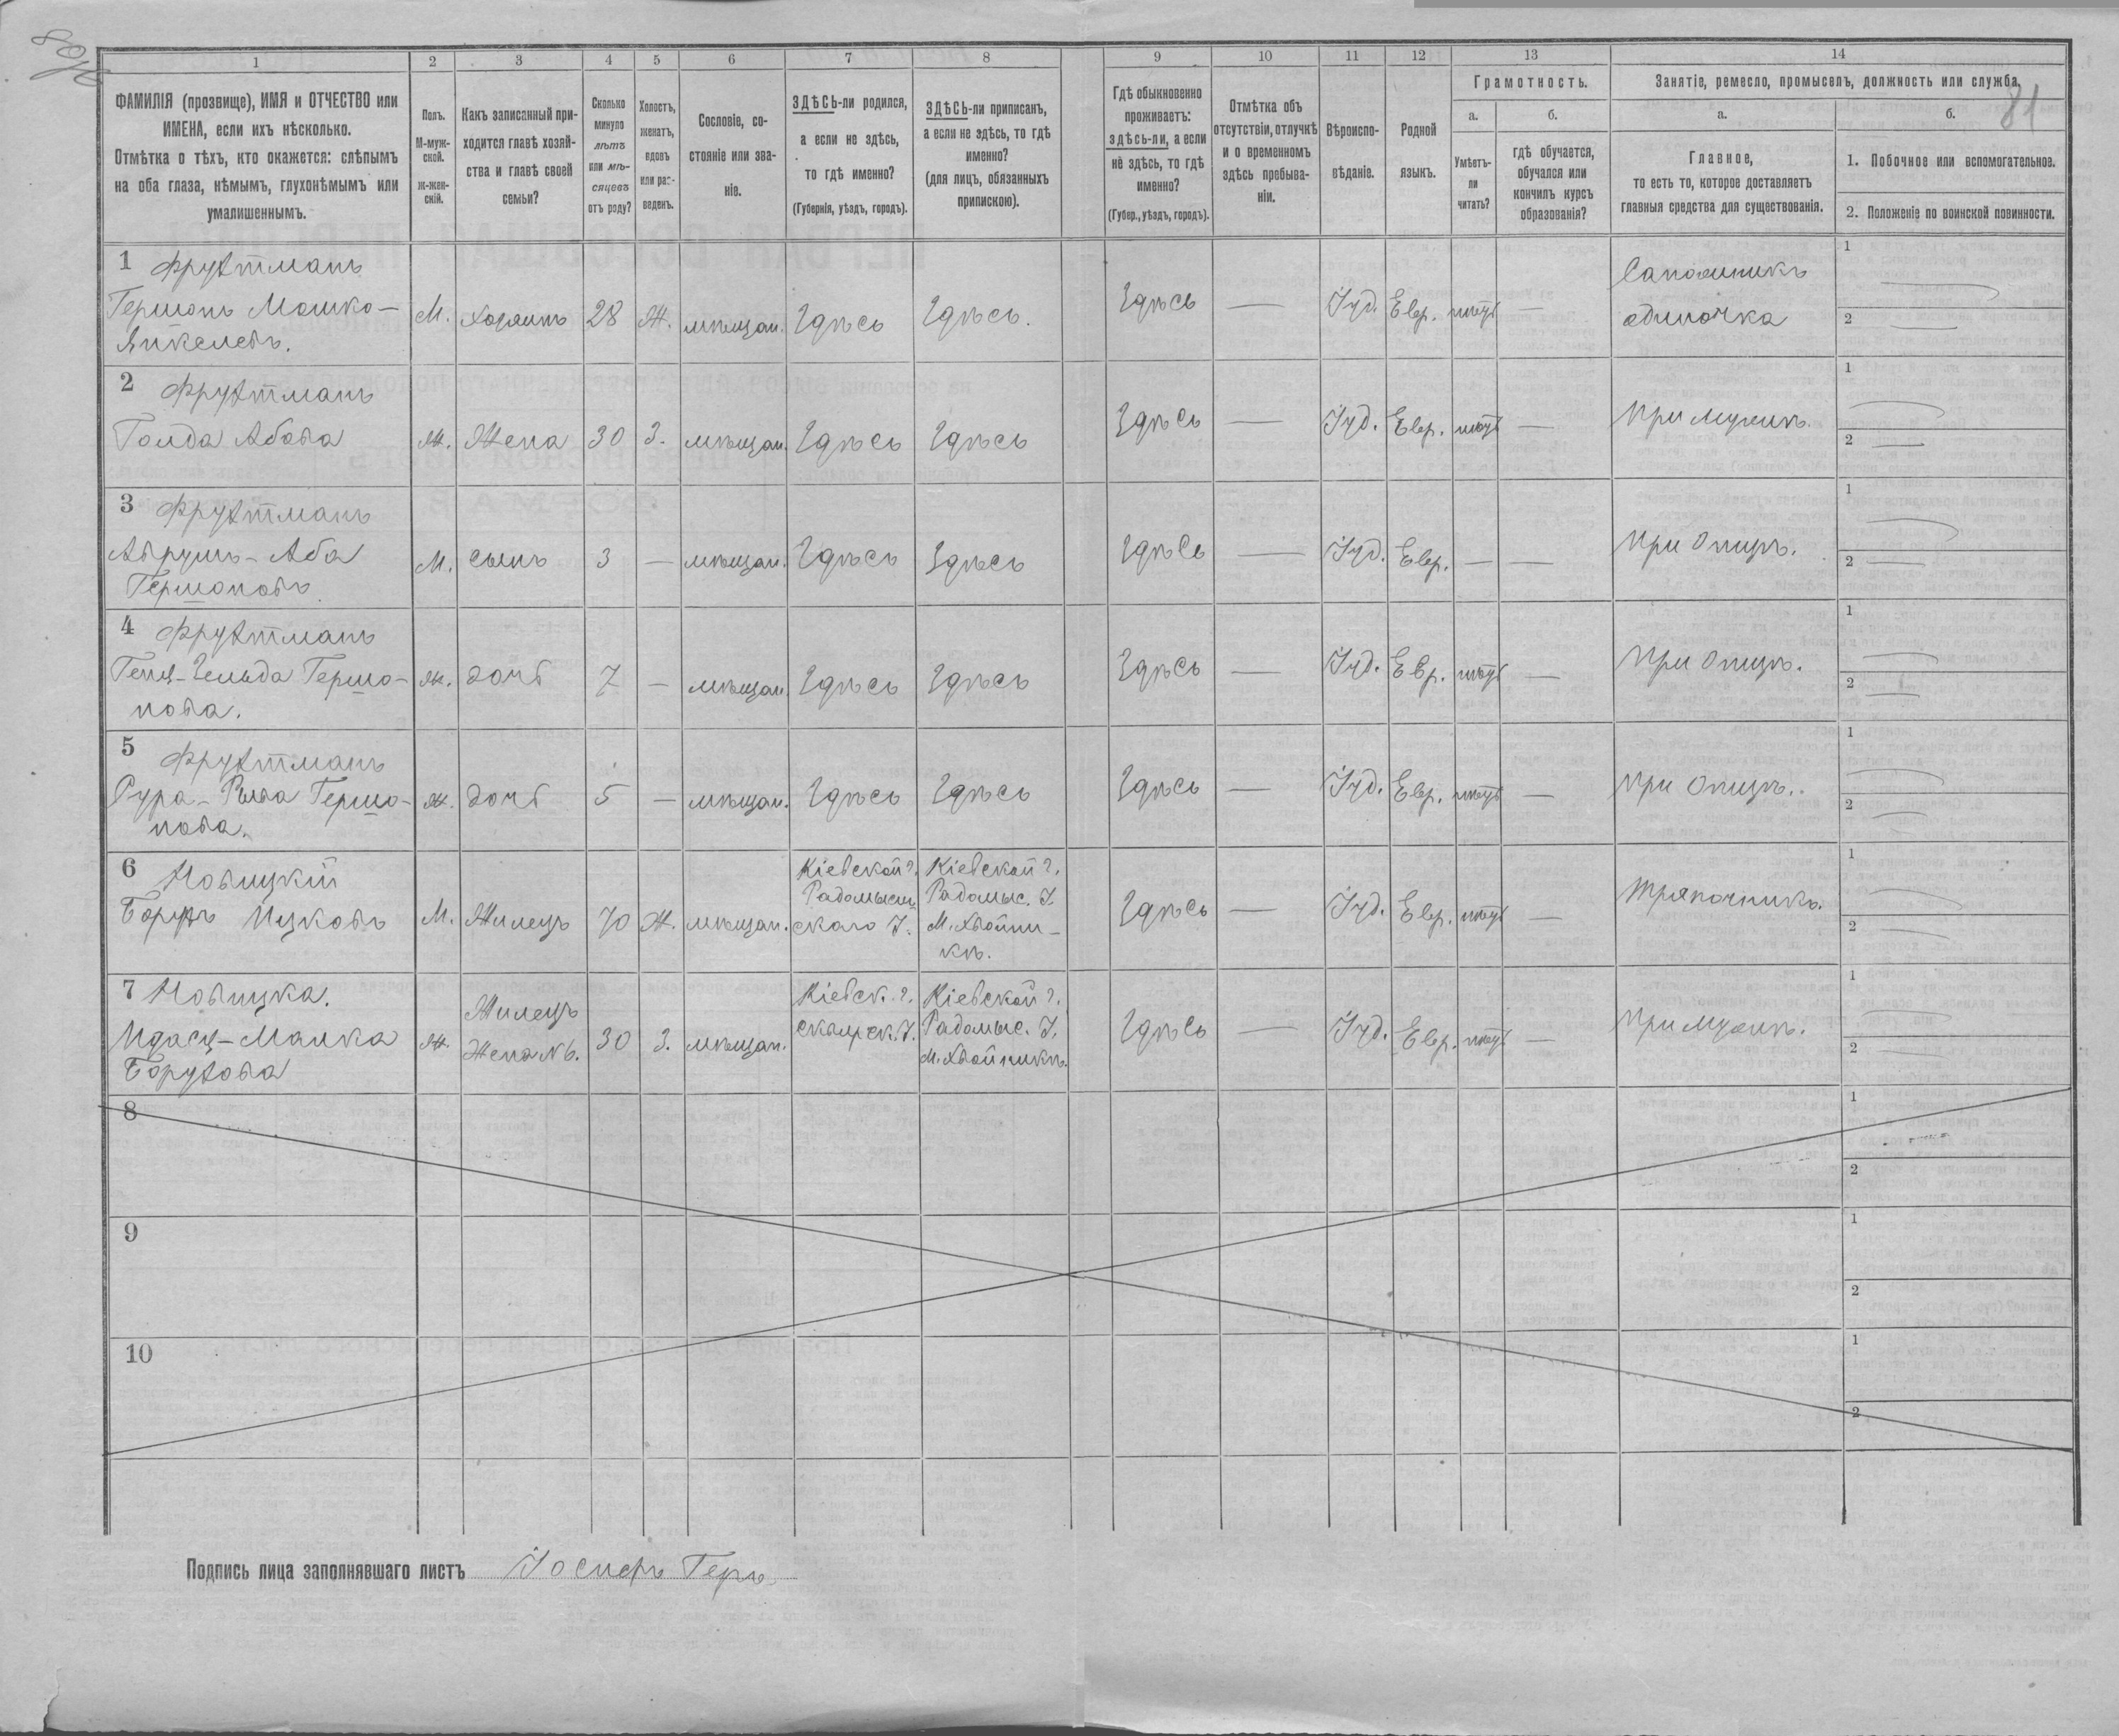 81
1
2
3
4
5
6
7
8
9
10
11
12
13
14
ФАМИЛІЯ (прозвище), ИМЯ и ОТЧЕСТВО или
ИМЕНА, если ихъ нѣсколько.
Отмѣтка о тѣхъ, кто окажется: слѣпымъ
на оба глаза, нѣмымъ, глухонѣмымъ или
умалишеннымъ.
Полъ.
М-муж-
ской.
Ж-жен-
скій.
Какъ записанный при-
ходится главѣ хозяй-
ства и главѣ своей
семьи?
Сколько
минуло
лѣтъ
или мѣ-
сяцевъ
отъ роду?
Холостъ,
женатъ,
вдовъ
или раз-
веденъ.
Сословіе, со-
стояніе или зва-
ніе.
ЗДѢСЬ-ли родился,
а если не здѣсь,
то гдѣ именно?
(Губернія, уѣздъ, городъ).
ЗДѢСЬ-ли приписанъ,
а если не здѣсь, то гдѣ
именно?
(для лицъ, обязанныхъ
припискою).
Гдѣ обыкновенно
проживаетъ:
здѣсь-ли, а если
не здѣсь, то гдѣ
именно?
(Губер., уѣздъ, городъ).
Отмѣтка объ
отсутствіи, отлучкѣ
и о временномъ
здѣсь пребыва-
ніи.
Вѣроиспо-
вѣданіе.
Родной
языкъ.
Грамотность.
а.
Умѣетъ-
ли
читать?
б.
гдѣ обучается,
обучался или
кончилъ курсъ
образованія?
Занятіе, ремесло, промыселъ, должность или служба.
а.
Главное,
то есть то, которое доставляетъ
главныя средства для существованія.
б.
1. Побочное или вспомогательное.
2. Положеніе по воинской повинности.
1 Фрухтманъ
Гершонъ Мошко-
Янкелевъ.
М. Хозяинъ 28 Ж. мѣщан. Здѣсь Здѣсь. Здѣсь — Іуд. Евр. —
Сапожникъ
одиночка
1
2
2 Фрухтманъ
Голда Абова
Ж. Жена 30 З. мѣщан. Здѣсь Здѣсь Здѣсь — Іуд. Евр. — При мужѣ.
1
2
3 Фрухтманъ
Аврумъ-Аба
Гершоновъ.
М. сынъ 3 — мѣщан. Здѣсь Здѣсь Здѣсь — Іуд. Евр. — — При Отцѣ.
1
2
4 Фрухтманъ
Гершо-
нова.
Ж. дочь 7 — мѣщан. Здѣсь Здѣсь Здѣсь — Іуд. Евр. — При Отцѣ.
1
2
5 Фрухтманъ
Гершо-
нова.
Ж. дочь 5 — мѣщан. Здѣсь Здѣсь Здѣсь — Іуд. Евр. — При Отцѣ.
1
2
6 Новицкій
Борухъ Ицковъ
М. Жилецъ 70 Ж. мѣщан.
Кіевской г.
Радомысль-
скаго У.
Кіевской г.
Радомыс. У.
М. Хвойни-
кѣ.
Здѣсь — Іуд. Евр. — Тряпочникъ.
1
2
7 Новицка.
Малка
Борухова
Ж.
Жилецъ
Жена № 6.
30 З. мѣщан.
Кіевск. г.
сквирск. У.
Кіевской г.
Радомыс. У.
М. Хвойникѣ.
Здѣсь — Іуд. Евр. — При мужѣ.
1
2
8
1
2
9
1
2
10
1
2
Подпись лица заполнявшаго листъ Іосифъ Геръ